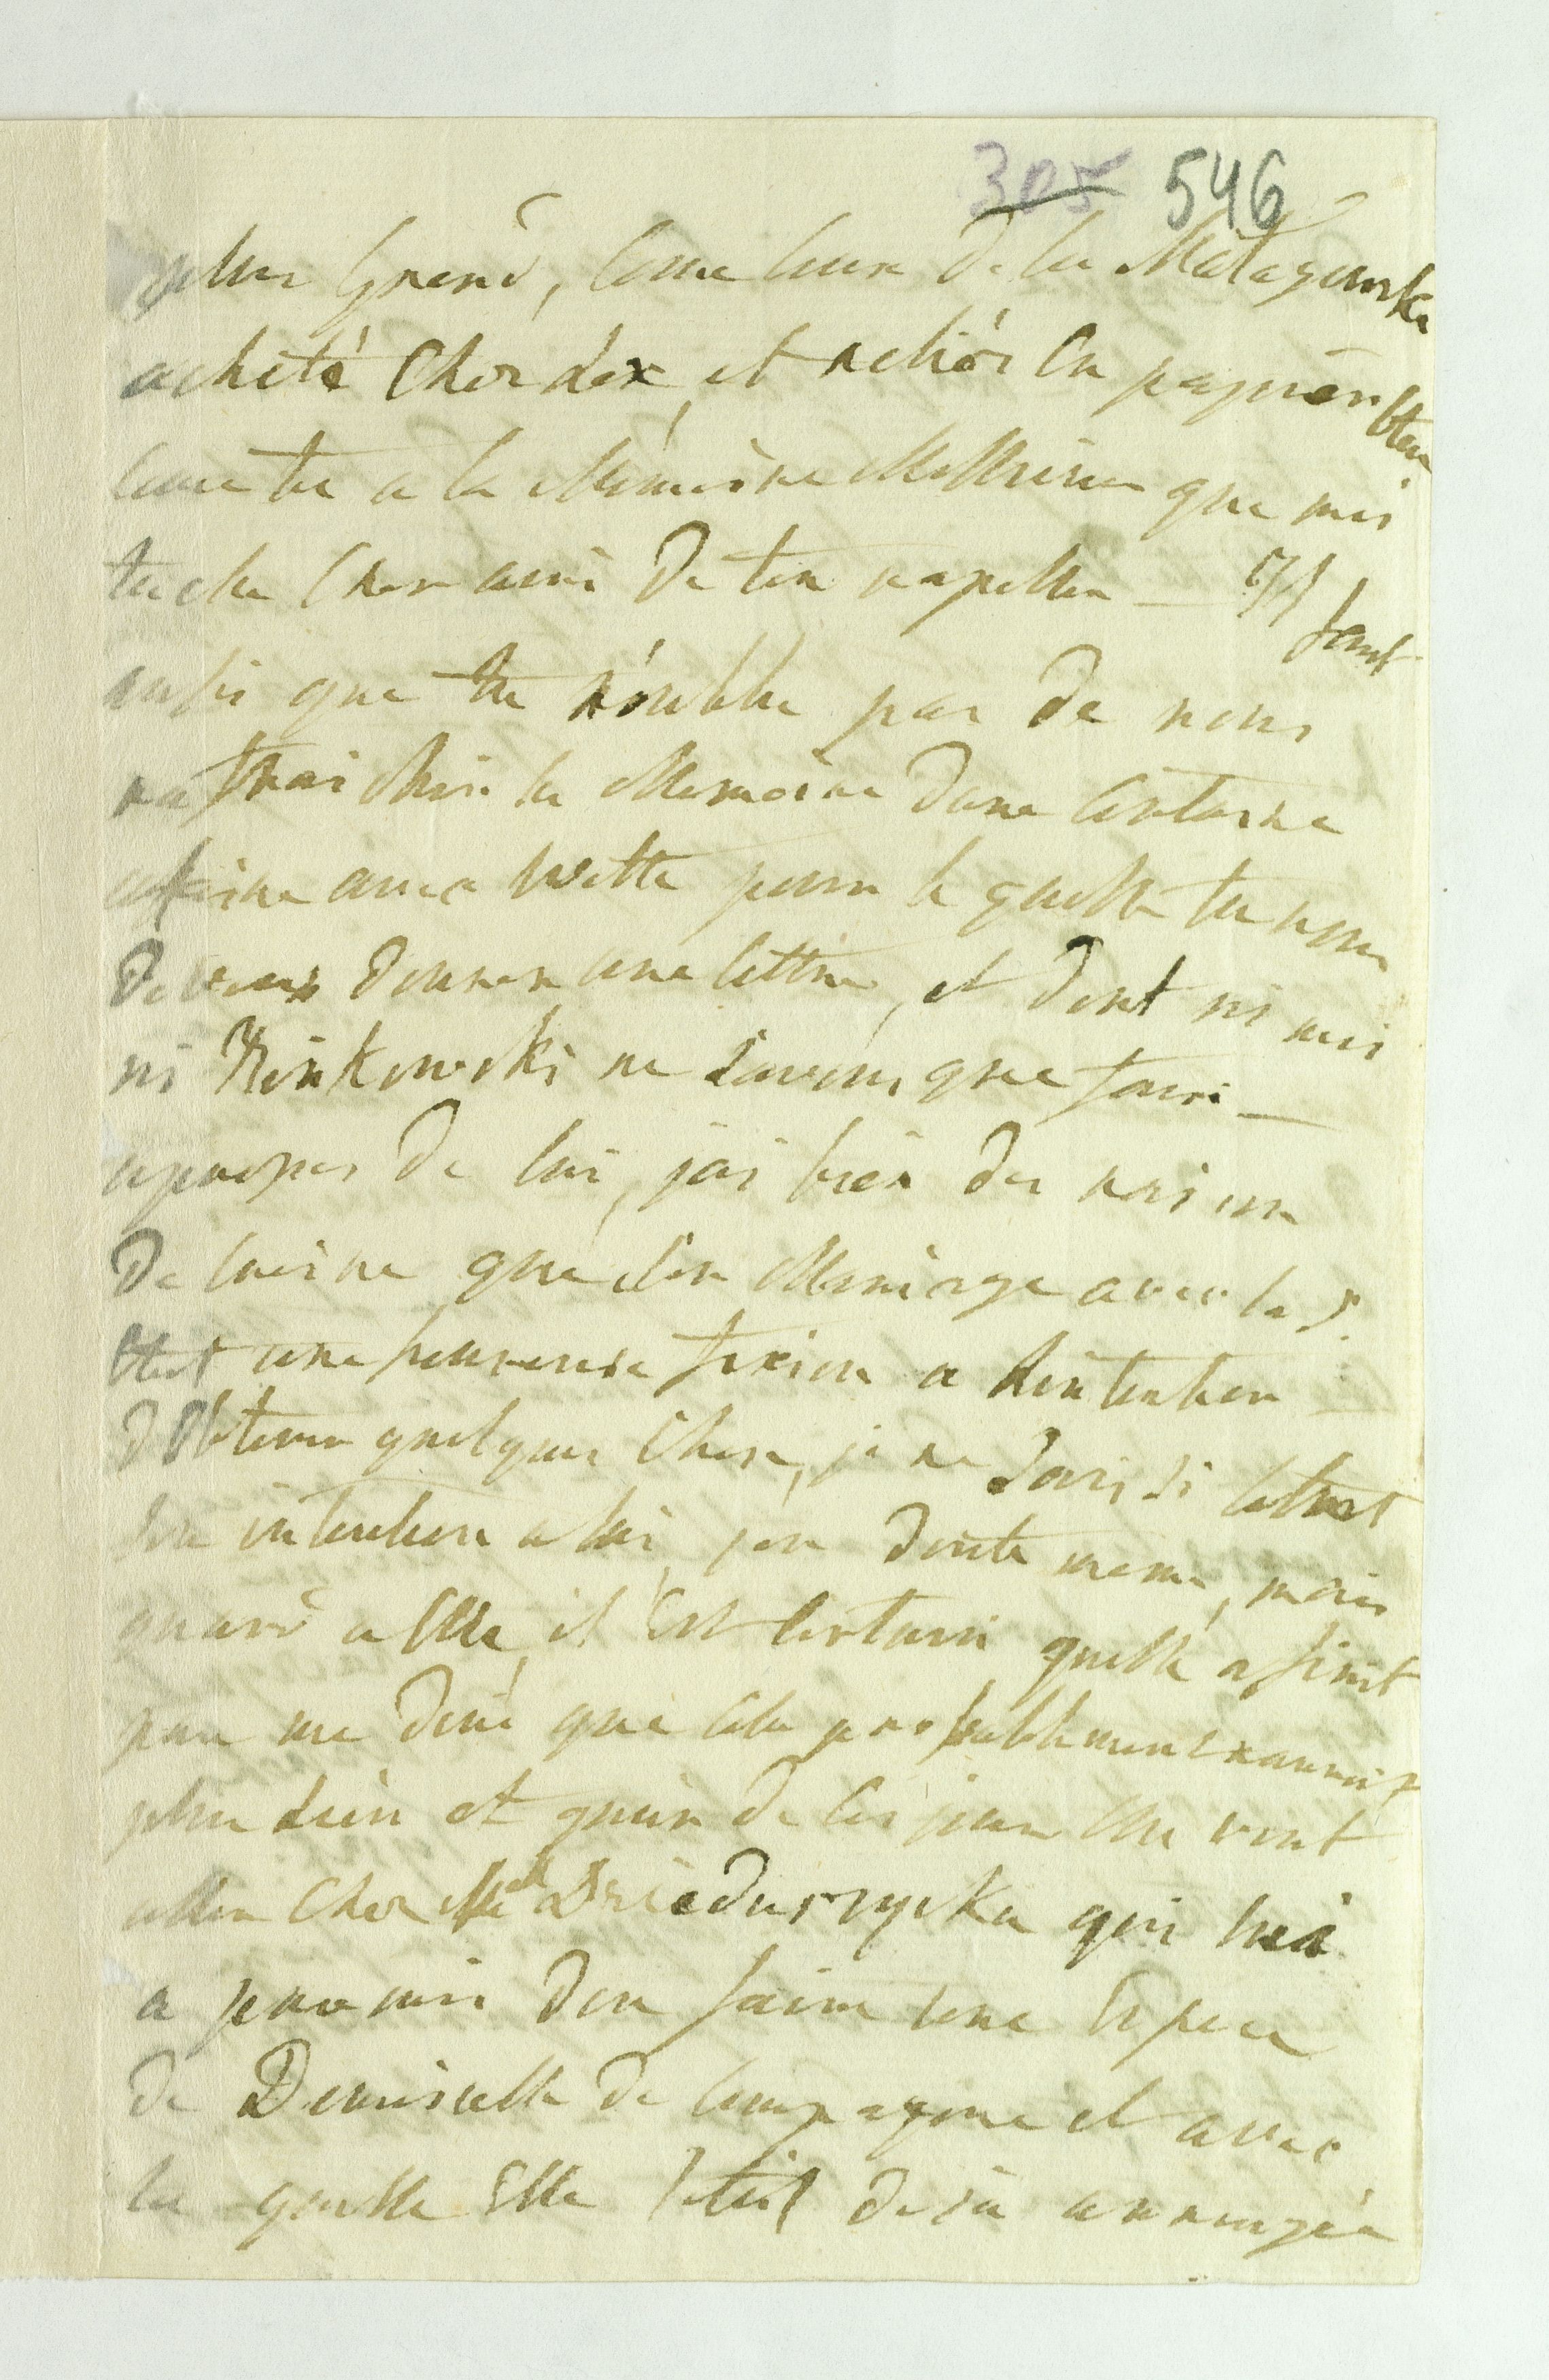 305 546
plus Grand, come ceux de la Matagowska
acheté Chez dex, et reliér En papiér bleu
come tu a la Memoire Meillieur que moi
tache Cher ami de ten rapeller — Il faut
aussi que tu n'oublie pas de nous
rafraichir la Memoire dune Certaine
afaire avec pour la quelle tu nous
devais donner une lettre, et dont ni moi
ni Minkowski ne Savons que faire —
apropos de lui, j'ai bien des raison
de croire que Son Mariage avec la S.
Etait une heureuse fixion a Lintention
dObtenir quelques Chose, je ne Sais Si Cetoit
Son intention a lui, jen doute meme, mais
quand a Elle, il Est Certain quelle a finit
par me dire que Cela probablement naurait
plus Lieu et quun de Ces jours Elle vont
aller Chez Md Dzieduszycka qui lui
a promi den faire une Espece
de Demoiselle de Compagnie et avec
la quelle Elle Setoit deja arrangée